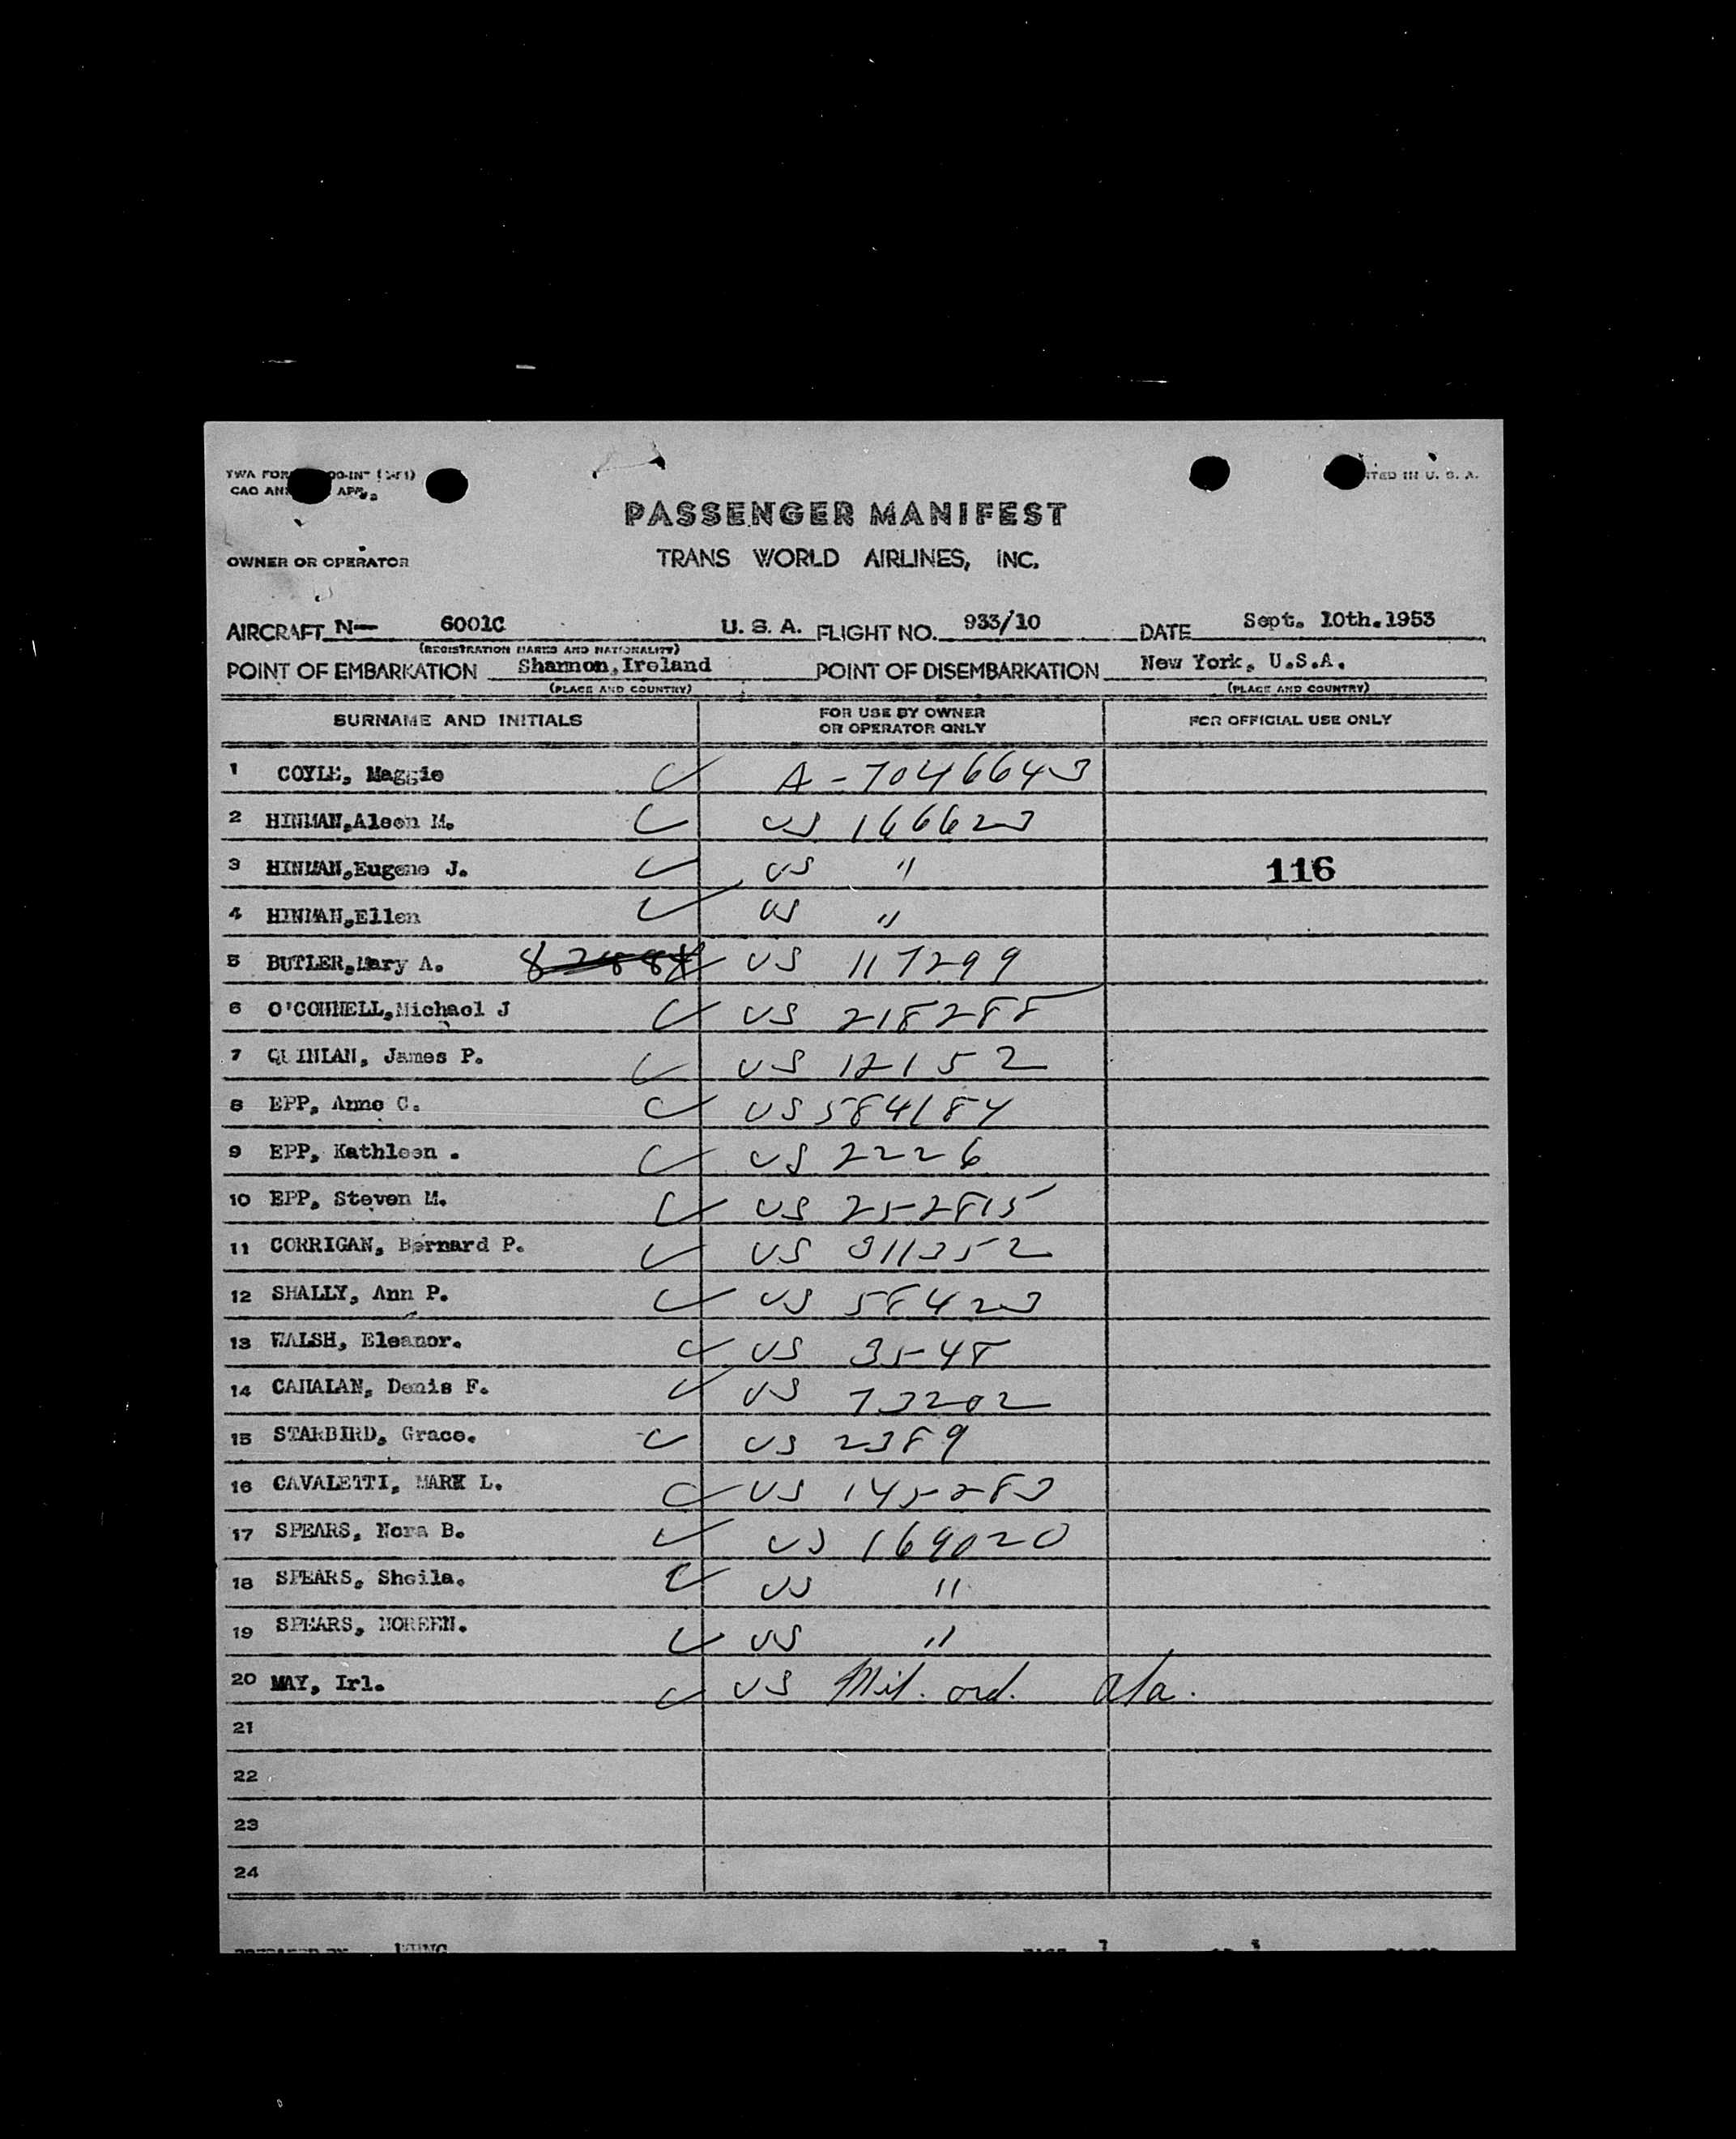 PASSENGER MANIFEST
OWNER OR OPERATOR TRANS WORLD AIRLINES, INC.
AIRCRAFT N- 6001C U. S. A. FLIGHT NO. 933/10 DATE Sept. 10th.1953
(REGISTRATION MARKS AND NATIONALITY)
POINT OF EMBARKATION Shannon,Ireland POINT OF DISEMBARKATION New York, U.S.A.
(PLACE AND COUNTRY) (PLACE AND COUNTRY)
SURNAME AND INITIALS FOR USE BY OWNER OR OPERATOR ONLY FOR OFFICIAL USE ONLY
1 COYLE, Maggie A-7046643
2 HINMAN,Aleen M. US 166623
3 HINMAN,Eugene J. US " 116
4 HINMAN,Ellen US "
5 BUTLER,Mary A. US 117299
6 O'CONNELL,Michael J US 218288
7 QUINLAN, James P. US 12152
8 EPP, Anne C. US 584184
9 EPP, Kathleen . US 2226
10 EPP, Steven M. US 252815
11 CORRIGAN, Bernard P. US 311352
12 SHALLY, Ann P. US 58423
13 WALSH, Eleanor. US 3548
14 CAHALAN, Denis F. US 73202
15 STARBIRD, Grace. US 2389
16 CAVALETTI, MARK L. US 145283
17 SPEARS, Nora B. US 169020
18 SPEARS, Sheila. US "
19 SPEARS, NOREEN. US "
20 MAY, Irl. US Mil. ord. ata.
21
22
23
24